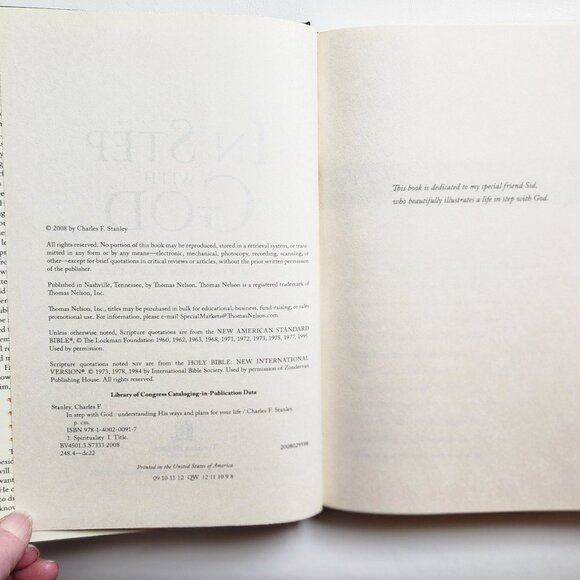 © 2008 by Charles F. Stanley
All rights reserved. No portion of this book may be reproduced, stored in a retrieval system, or trans-
mitted in any form or by any means—electronic, mechanical, photocopy, recording, scanning, or
other—except for brief quotations in critical reviews or articles, without the prior written permission
of the publisher.
Published in Nashville, Tennessee, by Thomas Nelson. Thomas Nelson is a registered trademark of
Thomas Nelson, Inc.
Thomas Nelson, Inc., titles may be purchased in bulk for educational, business, fund-raising, or sales
promotional use. For information, please e-mail SpecialMarkets@ThomasNelson.com.
Unless otherwise noted, Scripture quotations are from the NEW AMERICAN STANDARD
BIBLE®, © The Lockman Foundation 1960, 1962, 1963, 1968, 1971, 1972, 1973, 1975, 1977, 1995.
Used by permission.
Scripture quotations noted NIV are from the HOLY BIBLE: NEW INTERNATIONAL
VERSION® © 1973, 1978, 1984 by International Bible Society. Used by permission of Zondervan
Publishing House. All rights reserved.
Library of Congress Cataloging-in-Publication Data
Stanley, Charles F.
In step with God : understanding His ways and plans for your life / Charles F. Stanley.
p. cm.
ISBN 978-1-4002-0091-7
1. Spirituality I. Title.
BV4501.3.S7333 2008
248.4—dc22 2008029598
Printed in the United States of America
09 10 11 12 QW 12 11 10 9 8
This book is dedicated to my special friend Sid,
who beautifully illustrates a life in step with God.
IN STEP
WITH
GOD